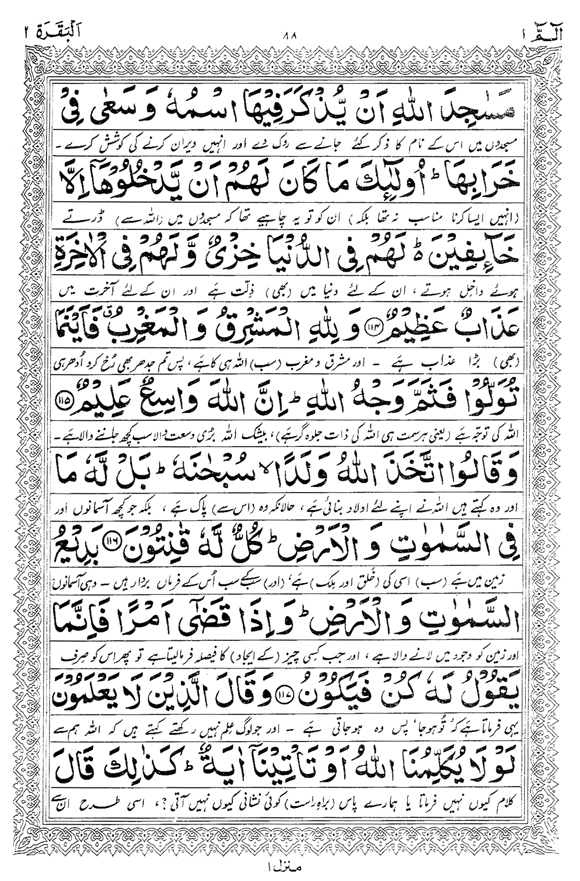 الٓمّٓ ١
٨٨
اَلْبَقَرَة ٢
مَسٰجِدَ اللّٰهِ اَنْ يُّذْكَرَ فِيْهَا اسْمُهٗ وَ سَعٰى فِيْ
مسجدوں میں اس کے نام کا ذکر کئے جانے سے روک دے اور انہیں ویران کرنے کی کوشش کرے ۔
خَرَابِهَا ؕ اُولٰٓئِكَ مَا كَانَ لَهُمْ اَنْ يَّدْخُلُوْهَاۤ اِلَّا
(انہیں ایسا کرنا مناسب نہ تھا بلکہ) ان کو تو یہ چاہیے تھا کہ مسجدوں میں (اللہ سے) ڈرتے
خَآئِفِيْنَ ؕ۬ لَهُمْ فِي الدُّنْيَا خِزْيٌ وَّ لَهُمْ فِي الْاٰخِرَةِ
ہوئے داخل ہوتے ، ان کے لئے دنیا میں (بھی) ذلّت ہے اور ان کے لئے آخرت میں
عَذَابٌ عَظِيْمٌ ﴿۱۱۴﴾ وَ لِلّٰهِ الْمَشْرِقُ وَ الْمَغْرِبُ ۗ فَاَيْنَمَا
(بھی) بڑا عذاب ہے ۔ اور مشرق و مغرب (سب) اللہ ہی کا ہے، پس تم جدھر بھی رخ کرو اُدھر ہی
تُوَلُّوْا فَثَمَّ وَجْهُ اللّٰهِ ؕ اِنَّ اللّٰهَ وَاسِعٌ عَلِيْمٌ ﴿۱۱۵﴾
اللہ کی توجّہ ہے (یعنی ہر سمت ہی اللہ کی ذات جلوہ گر ہے)، بیشک اللہ بڑی وسعت والا سب کچھ جاننے والا ہے ۔
وَ قَالُوا اتَّخَذَ اللّٰهُ وَلَدًا ۙ سُبْحٰنَهٗ ؕ بَلْ لَّهٗ مَا
اور وہ کہتے ہیں اللہ نے اپنے لئے اولاد بنائی ہے، حالانکہ وہ (اس سے) پاک ہے ، بلکہ جو کچھ آسمانوں اور
فِي السَّمٰوٰتِ وَ الْاَرْضِ ؕ كُلٌّ لَّهٗ قٰنِتُوْنَ ﴿۱۱۶﴾ بَدِيْعُ
زمین میں ہے (سب) اسی کی (خلق اور ملک) ہے، (اور) سب کے سب اُس کے فرماں بردار ہیں ۔ وہی آسمانوں
السَّمٰوٰتِ وَ الْاَرْضِ ؕ وَ اِذَا قَضٰٓى اَمْرًا فَاِنَّمَا
اور زمین کو وجود میں لانے والا ہے ، اور جب کسی چیز (کے ایجاد) کا فیصلہ فرما لیتا ہے تو پھر اس کو صرف
يَقُوْلُ لَهٗ كُنْ فَيَكُوْنُ ﴿۱۱۷﴾ وَ قَالَ الَّذِيْنَ لَا يَعْلَمُوْنَ
یہی فرماتا ہے کہ ’تُو ہو جا‘ پس وہ ہو جاتی ہے ۔ اور جو لوگ علم نہیں رکھتے کہتے ہیں کہ اللہ ہم سے
لَوْ لَا يُكَلِّمُنَا اللّٰهُ اَوْ تَاْتِيْنَاۤ اٰيَةٌ ؕ كَذٰلِكَ قَالَ
کلام کیوں نہیں فرماتا یا ہمارے پاس (براہِ راست) کوئی نشانی کیوں نہیں آتی؟، اسی طرح ان سے
منزل ١